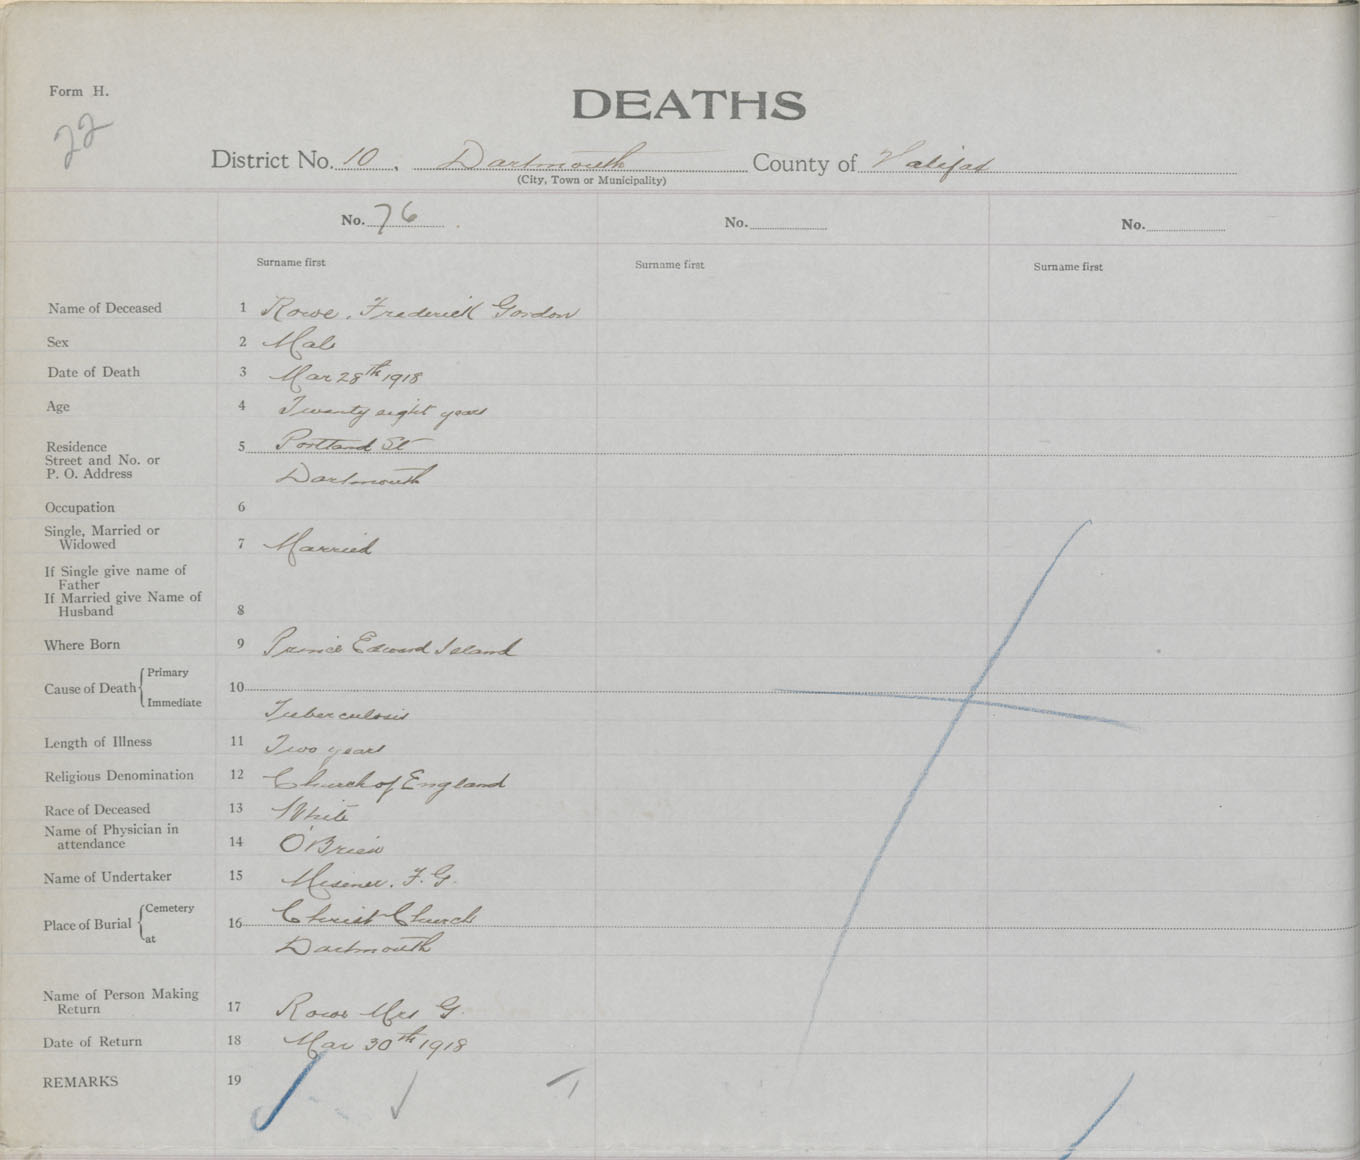 Form H.
22
DEATHS
District No. 10, Dartmouth County of Halifax
(City, Town or Municipality)
No. 76 No. No.
Surname first Surname first Surname first
Name of Deceased 1 Rowe, Frederick Gordon
Sex 2 Male
Date of Death 3 Mar 28th 1918
Age 4 Twenty eight years
Residence 5 Portland St
Street and No. or
P. O. Address Dartmouth
Occupation 6
Single, Married or
Widowed 7 Married
If Single give name of
Father
If Married give Name of
Husband 8
Where Born 9 Prince Edward Island
Primary
Cause of Death 10
Immediate Tuberculosis
Length of Illness 11 Two years
Religious Denomination 12 Church of England
Race of Deceased 13 White
Name of Physician in
attendance 14 O'Brien
Name of Undertaker 15 Misener, F. G.
Cemetery Christ Church
Place of Burial 16
at Dartmouth
Name of Person Making
Return 17 Rowe Mrs G.
Date of Return 18 Mar 30th 1918
REMARKS 19